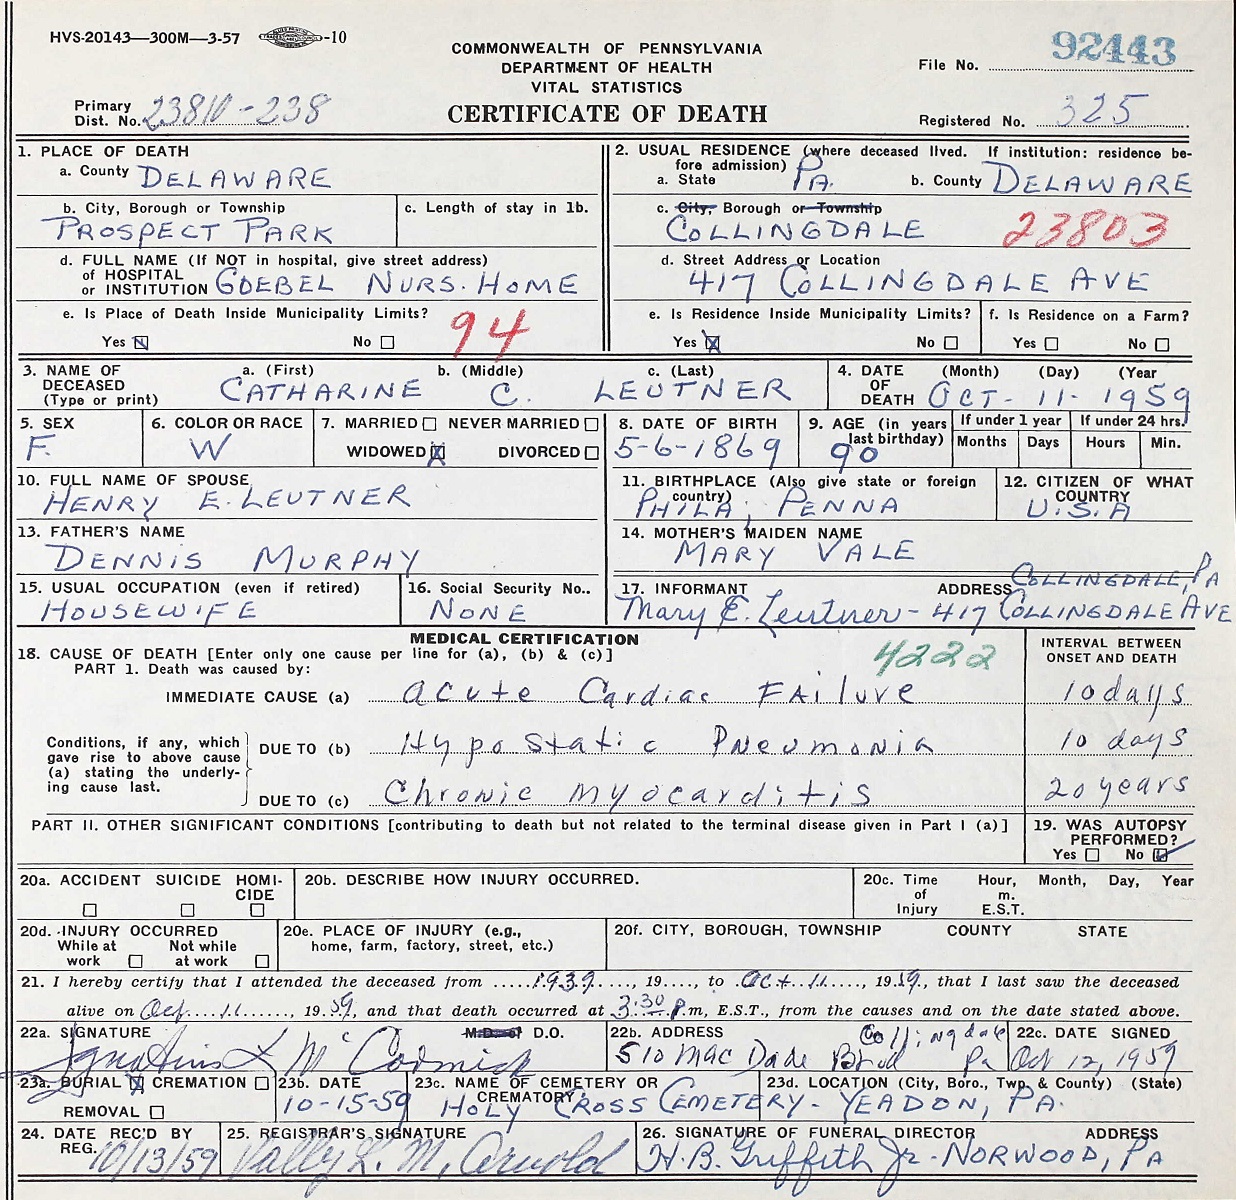 HVS-20143—300M—3-57 -10
COMMONWEALTH OF PENNSYLVANIA
DEPARTMENT OF HEALTH
VITAL STATISTICS
CERTIFICATE OF DEATH
92443
File No.
Primary
Dist. No. 23810-238
Registered No. 325
1. PLACE OF DEATH
a. County DELAWARE
b. City, Borough or Township
PROSPECT PARK
c. Length of stay in 1b.
d. FULL NAME (If NOT in hospital, give street address)
of HOSPITAL
or INSTITUTION GOEBEL NURS. HOME
e. Is Place of Death Inside Municipality Limits?
94
Yes No
2. USUAL RESIDENCE (where deceased lived. If institution: residence be-
fore admission)
a. State PA. b. County DELAWARE
c. City, Borough or Township
COLLINGDALE 23803
d. Street Address or Location
417 COLLINGDALE AVE
e. Is Residence Inside Municipality Limits?
Yes No
f. Is Residence on a Farm?
Yes No
3. NAME OF DECEASED (Type or print)
a. (First) b. (Middle) c. (Last)
CATHARINE C. LEUTNER
4. DATE OF DEATH (Month) (Day) (Year
OCT- 11- 1959
5. SEX
F.
6. COLOR OR RACE
W
7. MARRIED NEVER MARRIED
WIDOWED DIVORCED
8. DATE OF BIRTH
5-6-1869
9. AGE (in years last birthday)
90
If under 1 year If under 24 hrs.
Months Days Hours Min.
10. FULL NAME OF SPOUSE
HENRY E. LEUTNER
11. BIRTHPLACE (Also give state or foreign country)
PHILA, PENNA
12. CITIZEN OF WHAT COUNTRY
U.S.A
13. FATHER'S NAME
DENNIS MURPHY
14. MOTHER'S MAIDEN NAME
MARY VALE
15. USUAL OCCUPATION (even if retired)
HOUSEWIFE
16. Social Security No..
NONE
17. INFORMANT ADDRESS COLLINGDALE, PA
Mary E. Leutner - 417 COLLINGDALE AVE
MEDICAL CERTIFICATION
18. CAUSE OF DEATH [Enter only one cause per line for (a), (b) & (c)]
4222
INTERVAL BETWEEN
ONSET AND DEATH
PART 1. Death was caused by:
IMMEDIATE CAUSE (a) Acute Cardiac FAilure 10 days
Conditions, if any, which
gave rise to above cause
(a) stating the underly-
ing cause last.
DUE TO (b) Hypostatic Pneumonia 10 days
DUE TO (c) Chronic Myocarditis 20 years
PART II. OTHER SIGNIFICANT CONDITIONS [contributing to death but not related to the terminal disease given in Part I (a)]
19. WAS AUTOPSY
PERFORMED?
Yes No
20a. ACCIDENT SUICIDE HOMI-
CIDE
20b. DESCRIBE HOW INJURY OCCURRED.
20c. Time of Injury Hour, Month, Day, Year
m.
E.S.T.
20d. INJURY OCCURRED
While at work Not while at work
20e. PLACE OF INJURY (e.g.,
home, farm, factory, street, etc.)
20f. CITY, BOROUGH, TOWNSHIP COUNTY STATE
21. I hereby certify that I attended the deceased from 1939, 19...., to Oct 11, 1959, that I last saw the deceased
alive on Oct 11, 1959, and that death occurred at 3:30 P.m, E.S.T., from the causes and on the date stated above.
22a. SIGNATURE M.D. or D.O.
Ignatius X McCormick
22b. ADDRESS Collingdale
510 MacDade Blvd Pa
22c. DATE SIGNED
Oct 12, 1959
23a. BURIAL CREMATION
REMOVAL
23b. DATE
10-15-59
23c. NAME OF CEMETERY OR CREMATORY
HOLY CROSS CEMETERY-
23d. LOCATION (City, Boro., Twp. & County) (State)
YEADON, PA.
24. DATE REC'D BY
REG. 10/13/59
25. REGISTRAR'S SIGNATURE
M. Arnold
26. SIGNATURE OF FUNERAL DIRECTOR ADDRESS
H.B. Griffith Jr- NORWOOD, PA